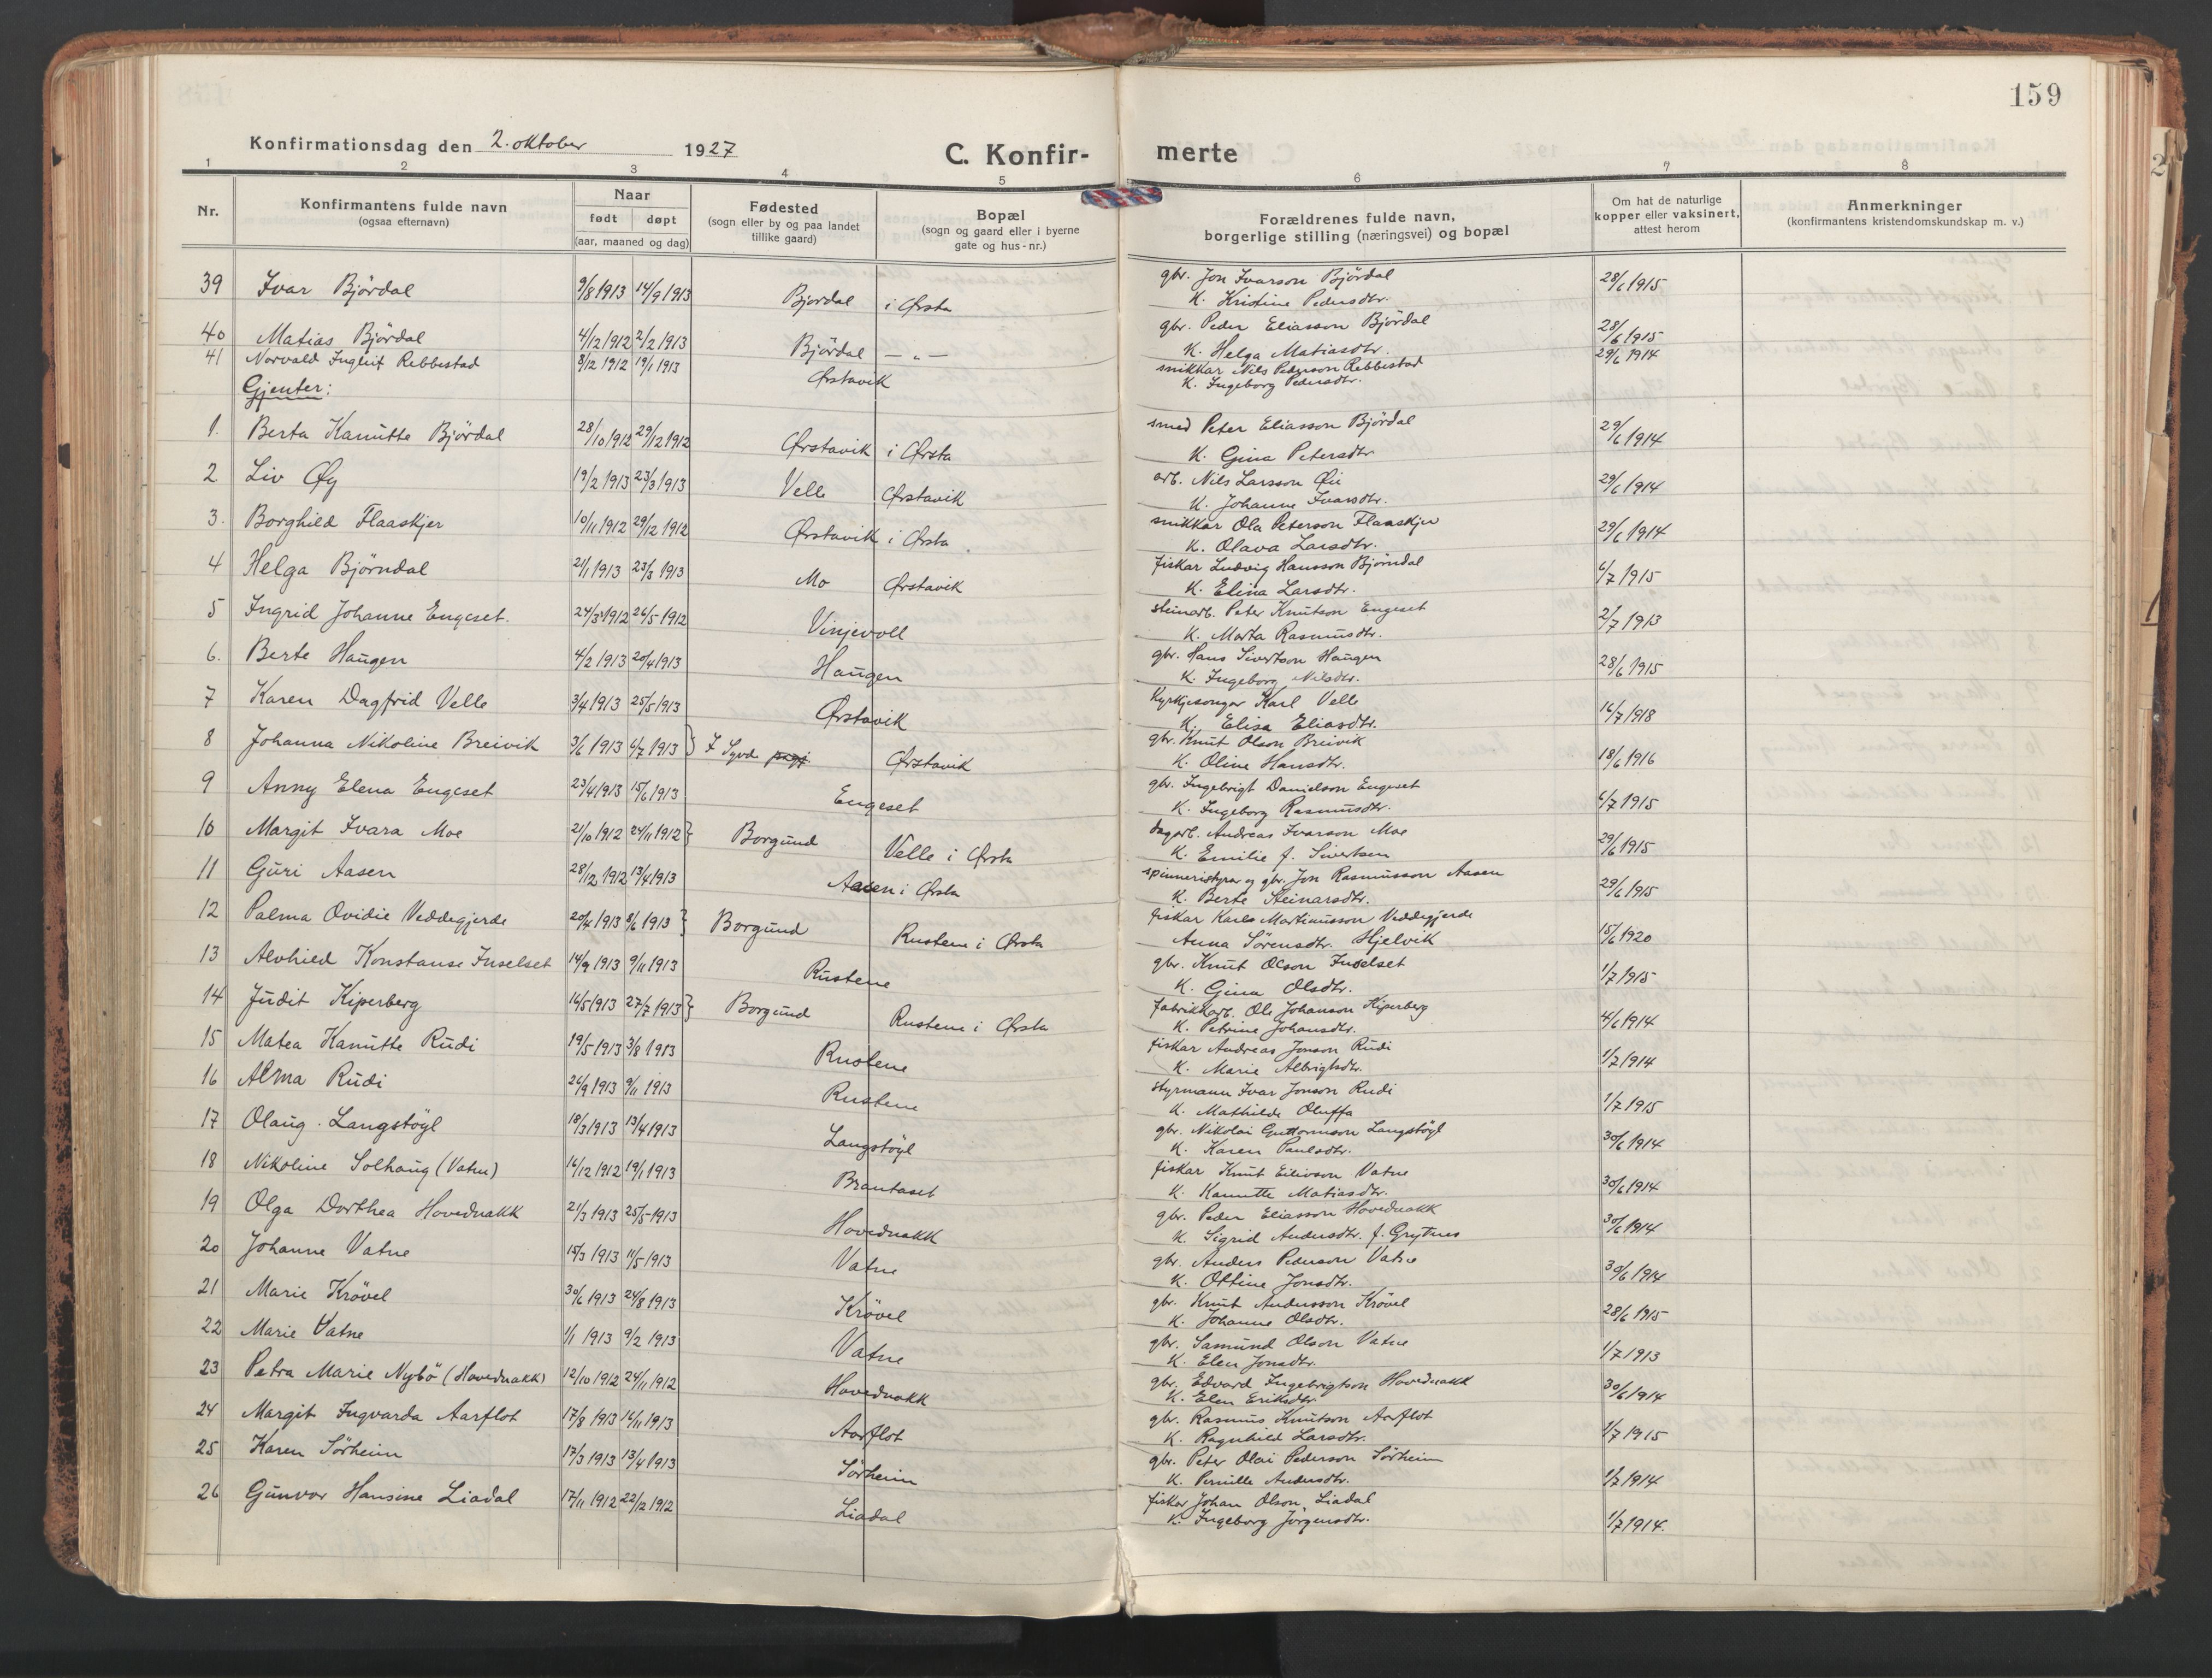 159
Konfirmationsdag den 2. oktober 1927
C. Konfir- merte
1 2 3 4 5 6 7 8
Nr. | Konfirmantens fulde navn (ogsaa efternavn) | Naar født døpt (aar, maaned og dag) | Fødested (sogn eller by og paa landet tillike gaard) | Bopæl (sogn og gaard eller i byerne gate og hus-nr.) | Forældrenes fulde navn, borgerlige stilling (næringsvei) og bopæl | Om hat de naturlige kopper eller vaksinert, attest herom | Anmerkninger (konfirmantens kristendomskundskap m. v.)
39 Ivar Björdal 9/8 1913 14/9 1913 Bjordal i Ørsta gbr. Jon Ivarson Björdal 28/6 1915
K. Kristine Pedersdtr.
40 Matias Björdal 4/12 1912 2/2 1913 Björdal — " — gbr. Peder Eliasson Björdal 28/6 1915
K. Helga Matiasdtr.
41 Norvald Ingleif Rebbestad 8/12 1912 19/1 1913 Ørstavik snikkar Nils Pederson Rebbestad 29/6 1914
K. Ingeborg Pedersdtr.
Gjenter:
1. Berta Kanutte Björdal 28/10 1912 29/12 1912 Ørstavik i Ørsta smed Peter Eliasson Björdal 29/6 1914
K. Gina Petersdtr
2 Liv Øy 19/2 1913 23/3 1913 Velle Ørstavik arb. Nils Larsson Øy 29/6 1914
K. Johanne Ivarsdtr.
3. Borghild Flaaskjer 10/11 1912 29/12 1912 Ørstavik i Ørsta snikkar Ola Peterson Flaaskjer 29/6 1914
K. Olava Larsdtr.
4 Helga Björndal 21/1 1913 23/3 1913 Mo Ørstavik fiskar Ludvig Hansson Björndal 6/7 1915
K. Elina Larsdtr.
5 Ingrid Johanne Engeset. 24/3 1912 26/5 1912 Vinjevoll steinarb. Peter Knutson Engeset 2/7 1913
K. Marta Rasmusdtr.
6. Berte Haugen 4/2 1913 20/4 1913 Haugen gbr. Hans Sivertson Haugen 28/6 1915
K. Ingeborg Nilsdtr.
7 Karen Dagfrid Velle 3/4 1913 25/5 1913 Ørstavik kyrkjesongar Karl Velle 16/7 1918
K. Elisa Eliasdtr.
8 Johanna Nikoline Breivik 3/6 1913 6/7 1913 } I Syvd Ørstavik gbr. Knut Olson Breivik 18/6 1916
K. Oline Hansdtr.
9 Anny Elena Engeset 23/4 1913 15/6 1913 Engeset gbr. Ingebrigt Danielson Engeset 6/7 1915
K. Ingeborg Rasmusdtr.
10 Margit Ivara Moe 21/10 1912 24/11 1912 } Borgund Velle i Ørsta dagarb. Andreas Ivarson Moe 29/6 1915
K. Emilie f. Sivertsen
11 Guri Aasen 28/12 1912 13/4 1913 Aasen i Ørsta spinneristyrar og gbr. Jon Rasmusson Aasen 29/6 1915
K. Berte Steinarsdtr.
12 Palma Ovidie Veddegjerde 20/4 1913 8/6 1913 } Borgund Rustene i Ørsta fiskar Karls Martinusson Veddegjerde 15/6 1920
Anna Sörensdtr. Hjelvik
13 Alvhild Konstanse Inselset 14/9 1913 9/11 1913 Rustene gbr. Knut Olson Inselset 1/7 1915
K. Gina Olsdtr.
14 Judit Kiperberg 16/5 1913 27/7 1913 } Borgund Rustene i Ørsta fabrikkarb. Ole Johanson Kiperberg 4/6 1914
K. Petrine Johansdtr.
15 Matea Kanutte Rudi 19/5 1913 3/8 1913 Rustene fiskar Andreas Jonson Rudi 1/7 1914
K. Marie Albrigtsdtr.
16 Alma Rudi 26/9 1913 9/11 1913 Rustene styrmann Ivar Jonson Rudi 1/7 1915
K. Mathilde Oluffa
17 Olaug Langstöyl 18/3 1913 13/4 1913 Langstöyl gbr. Nikolai Guttormson Langstöyl 30/6 1914
K. Karen Paulsdtr.
18 Nikoline Solhaug (Vatne) 16/12 1912 19/1 1913 Brautaset fiskar Knut Eilivson Vatne 30/6 1914
K. Kanutte Matiasdtr.
19 Olga Dorthea Hovednakk 21/3 1913 25/5 1913 Hovednakk gbr. Peder Eliasson Hovednakk 30/6 1914
K. Sigrid Andersdtr. f. Grytnes
20 Johanne Vatne 15/3 1913 11/5 1913 Vatne gbr. Anders Pederson Vatne 30/6 1914
K. Ottine Jonsdtr.
21 Marie Krövel 30/6 1913 24/8 1913 Krövel gbr. Knut Andersson Krövel 28/6 1915
K. Johanne Olsdtr.
22 Marie Vatne 1/1 1913 9/2 1913 Vatne gbr. Samund Olson Vatne 1/7 1913
K. Elen Jonsdtr.
23 Petra Marie Nybö (Hovednakk) 12/10 1912 24/11 1912 Hovednakk gbr. Edvard Ingebrigtson Hovednakk 30/6 1914
K. Elen Eriksdtr.
24 Margit Ingvarda Aarflot 17/8 1913 16/11 1913 Aarflot gbr. Rasmus Knutson Aarflot 1/7 1915
K. Ragnhild Larsdtr.
25 Karen Sörheim 17/3 1913 13/4 1913 Sörheim gbr. Peter Olai Pederson Sörheim 1/7 1914
K. Pernille Andersdtr.
26 Gunvor Hansine Liadal 17/11 1912 22/12 1912 Liadal fiskar Johan Olson Liadal 1/7 1914.
K. Ingeborg Jörgensdtr.